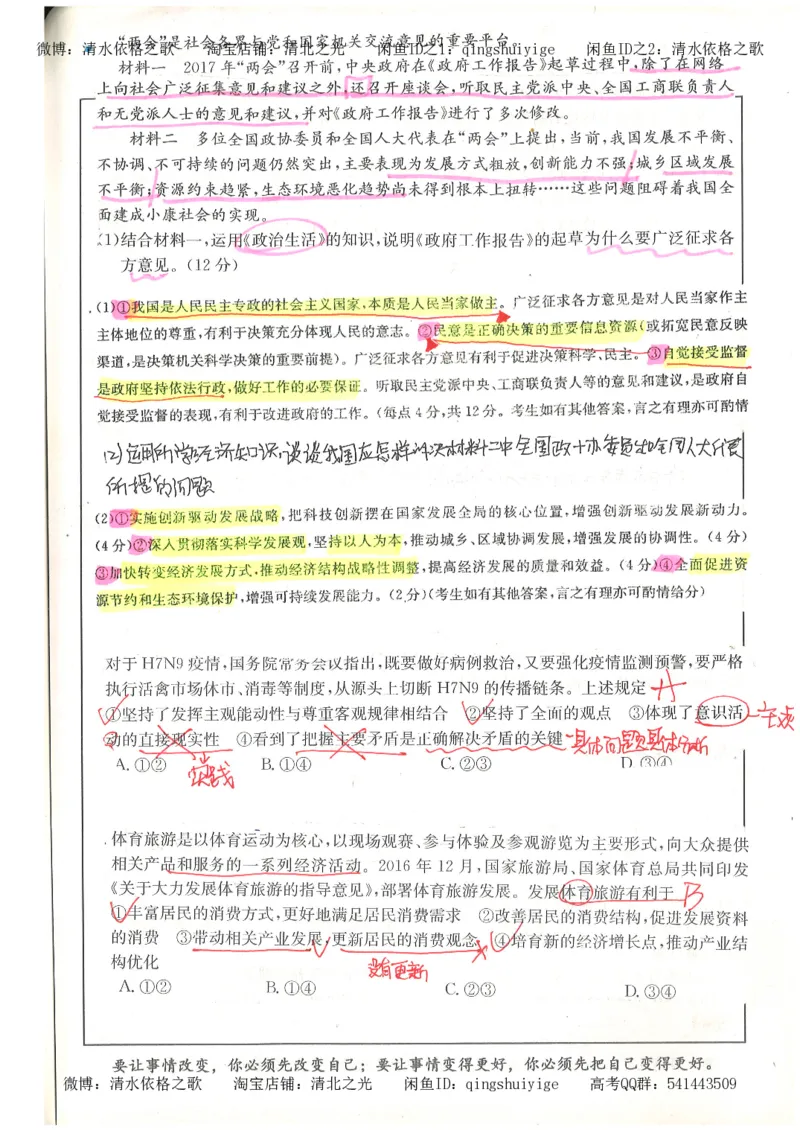 “两会”是社会各界与党和国家机关交流意见的重要平台。
微博：清水依格之歌 淘宝店铺：清北之光 闲鱼ID之1：qingshuiyige 闲鱼ID之2：清水依格之歌
材料一 2017年“两会”召开前,中央政府在《政府工作报告》起草过程中,除了在网络
上向社会广泛征集意见和建议之外,还召开座谈会,听取民主党派中央、全国工商联负责人
和无党派人士的意见和建议,并对《政府工作报告》进行了多次修改。
材料二 多位全国政协委员和全国人大代表在“两会”上提出,当前,我国发展不平衡、
不协调、不可持续的问题仍然突出,主要表现为发展方式粗放,创新能力不强;城乡区域发展
不平衡;资源约束趋紧,生态环境恶化趋势尚未得到根本上扭转……这些问题阻碍着我国全
面建成小康社会的实现。
(1)结合材料一,运用《政治生活》的知识,说明《政府工作报告》的起草为什么要广泛征求各
方意见。(12分)
(1)①我国是人民民主专政的社会主义国家,本质是人民当家做主。广泛征求各方意见是对人民当家作主
主体地位的尊重,有利于决策充分体现人民的意志。②民意是正确决策的重要信息资源(或拓宽民意反映
渠道,是决策机关科学决策的重要前提)。广泛征求各方意见有利于促进决策科学、民主。③自觉接受监督
是政府坚持依法行政,做好工作的必要保证。听取民主党派中央、工商联负责人等的意见和建议,是政府自
觉接受监督的表现,有利于改进政府的工作。(每点4分,共12分。考生如有其他答案,言之有理亦可酌情
(2)运用所学经济知识,谈谈我国应怎样解决材料二中全国政协委员和全国人大代表
所提的问题
(2)①实施创新驱动发展战略,把科技创新摆在国家发展全局的核心位置,增强创新驱动发展新动力。
(4分)②深入贯彻落实科学发展观,坚持以人为本,推动城乡、区域协调发展,增强发展的协调性。(4分)
③加快转变经济发展方式,推动经济结构战略性调整,提高经济发展的质量和效益。(4分)④全面促进资
源节约和生态环境保护,增强可持续发展能力。(2分)(考生如有其他答案,言之有理亦可酌情给分)
对于H7N9疫情,国务院常务会议指出,既要做好病例救治,又要强化疫情监测预警,要严格
执行活禽市场休市、消毒等制度,从源头上切断H7N9的传播链条。上述规定 A
①坚持了发挥主观能动性与尊重客观规律相结合 ②坚持了全面的观点 ③体现了意识活 主观
动的直接现实性 ④看到了把握主要矛盾是正确解决矛盾的关键 具体问题具体分析
实践
A.①② B.①④ C.②③ D.③④
体育旅游是以体育运动为核心,以现场观赛、参与体验及参观游览为主要形式,向大众提供
相关产品和服务的一系列经济活动。2016年12月,国家旅游局、国家体育总局共同印发
《关于大力发展体育旅游的指导意见》,部署体育旅游发展。发展体育旅游有利于 B
①丰富居民的消费方式,更好地满足居民消费需求 ②改善居民的消费结构,促进发展资料
的消费 ③带动相关产业发展,更新居民的消费观念 ④培育新的经济增长点,推动产业结
构优化
没有更新
A.①② B.①④ C.②③ D.③④
要让事情改变，你必须先改变自己；要让事情变得更好，你必须先把自己变得更好。
微博：清水依格之歌 淘宝店铺：清北之光 闲鱼ID：qingshuiyige 高考QQ群：541443509